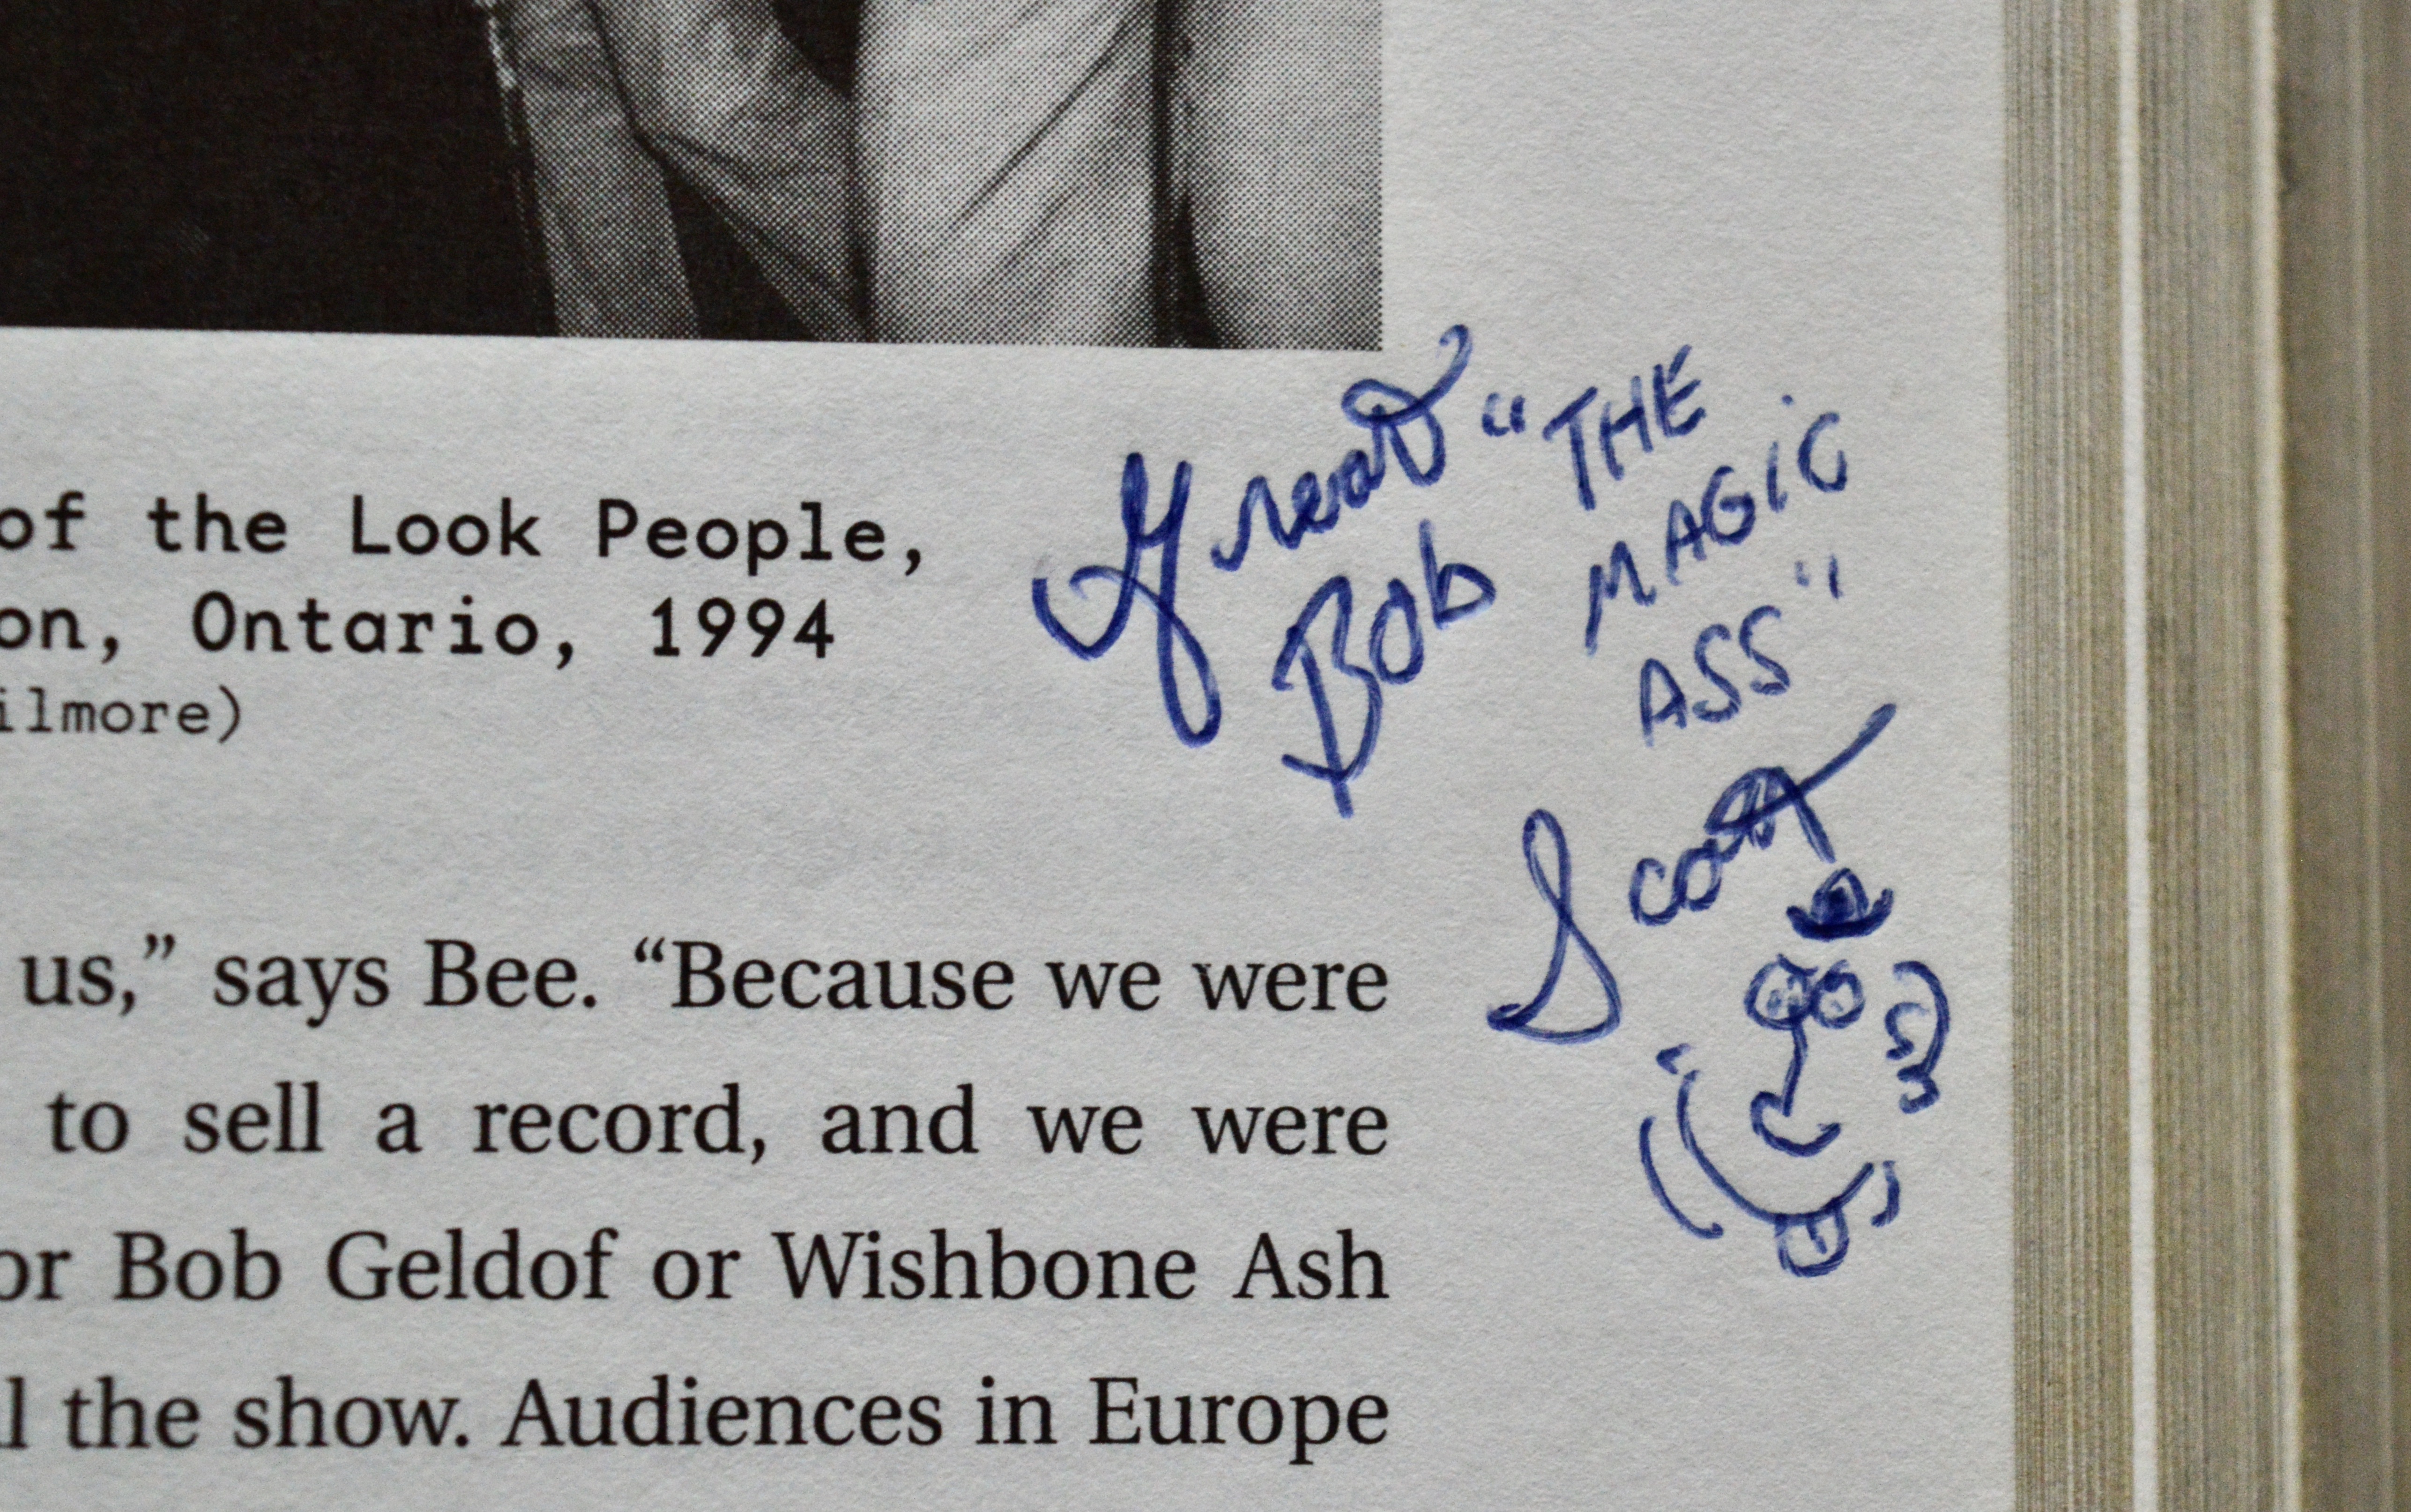 of the Look People,
on, Ontario, 1994
ilmore)
Great
Bob
"THE
MAGIC
ASS"
Scott
us,” says Bee. “Because we were
to sell a record, and we were
or Bob Geldof or Wishbone Ash
l the show. Audiences in Europe